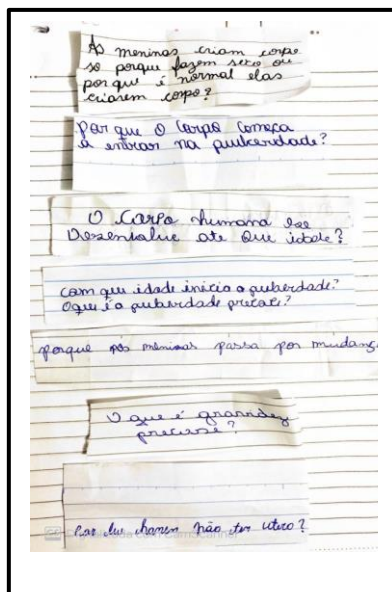 As meninas criam corpo
só porque fazem sexo ou
por que é normal elas
criarem corpo?
Por que o corpo começa
a entrar na puberdade?
O corpo humano se
Desenvolve ate que idade?
com que idade inicio a puberdade?
Oque é a puberdade precoce?
porque nós meninas passa por mudanç
O que é gravidez
precoce?
Por que homem não ter utero?